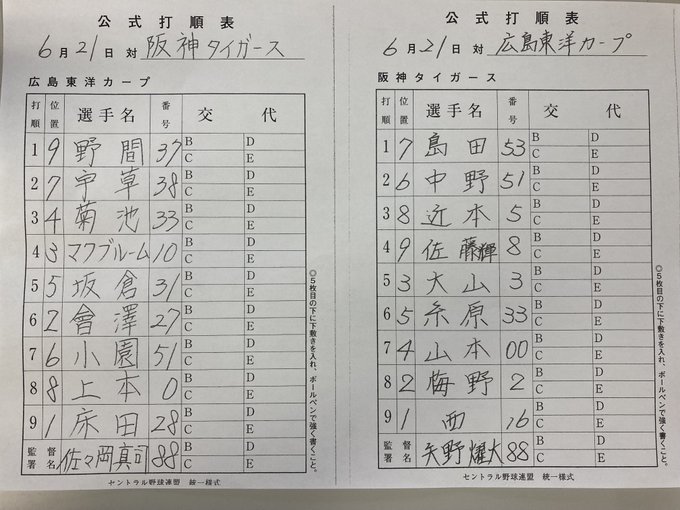 公式打順表
6月21日対 阪神タイガース
広島東洋カープ
打順 位置 選手名 番号 交代
1 9 野間 37 B D C E
2 7 宇草 38 B D C E
3 4 菊池 33 B D C E
4 3 マクブルーム 10 B D C E
5 5 坂倉 31 B D C E
6 2 會澤 27 B D C E
7 6 小園 51 B D C E
8 8 上本 0 B D C E
9 1 床田 28 B D C E
監督署名 佐々岡真司 88 B D C E
◎5枚目の下に下敷きを入れ、ボールペンで強く書くこと。
セントラル野球連盟 統一様式
公式打順表
6月21日対 広島東洋カープ
阪神タイガース
打順 位置 選手名 番号 交代
1 7 島田 53 B D C E
2 6 中野 51 B D C E
3 8 近本 5 B D C E
4 9 佐藤輝 8 B D C E
5 3 大山 3 B D C E
6 5 糸原 33 B D C E
7 4 山本 00 B D C E
8 2 梅野 2 B D C E
9 1 西 16 B D C E
監督署名 矢野燿大 88 B D C E
◎5枚目の下に下敷きを入れ、ボールペンで強く書くこと。
セントラル野球連盟 統一様式